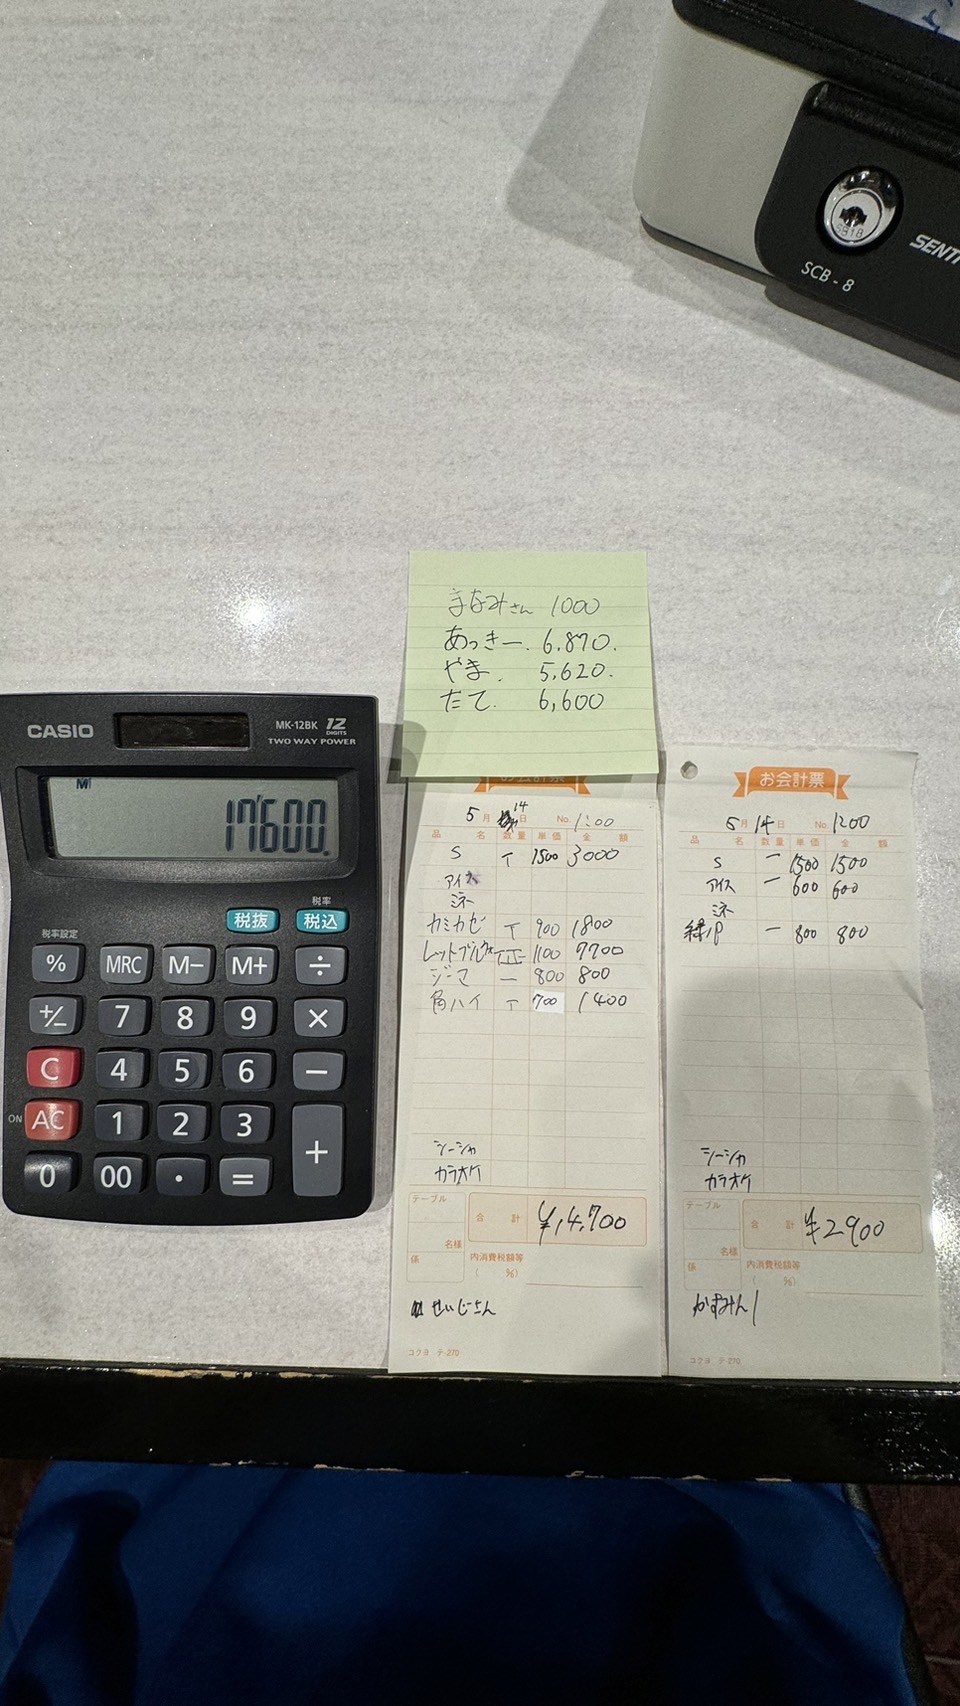 SCB-8
SENT
まなみさん 1000
あっきー. 6.870.
やま. 5,620.
たて. 6,600
CASIO
MK-12BK 12 DIGITS
TWO WAY POWER
M
17'600.
税率
税抜 税込
税率設定
% MRC M- M+ ÷
+/- 7 8 9 ×
C 4 5 6 −
ON AC 1 2 3 +
0 00 · =
5月 14日 No. 1:00
品 名 数量 単価 金 額
S T 1500 3000
アイス
ミネ
カミカゼ T 900 1800
1100 7700
ジーマ 一 800 800
角ハイ T 700 1400
シーシャ
カラオケ
テーブル
名様
係
合 計 ¥14,700
内消費税額等
( %)
せいじさん
コクヨ テ-270
お会計票
5月14日 No. 1200
品 名 数量 単価 金 額
S 一 1500 1500
アイス 一 600 600
ミネ
緑パ 一 800 800
シーシャ
カラオケ
テーブル
名様
係
合 計 ¥2900
内消費税額等
( %)
コクヨ テ-270